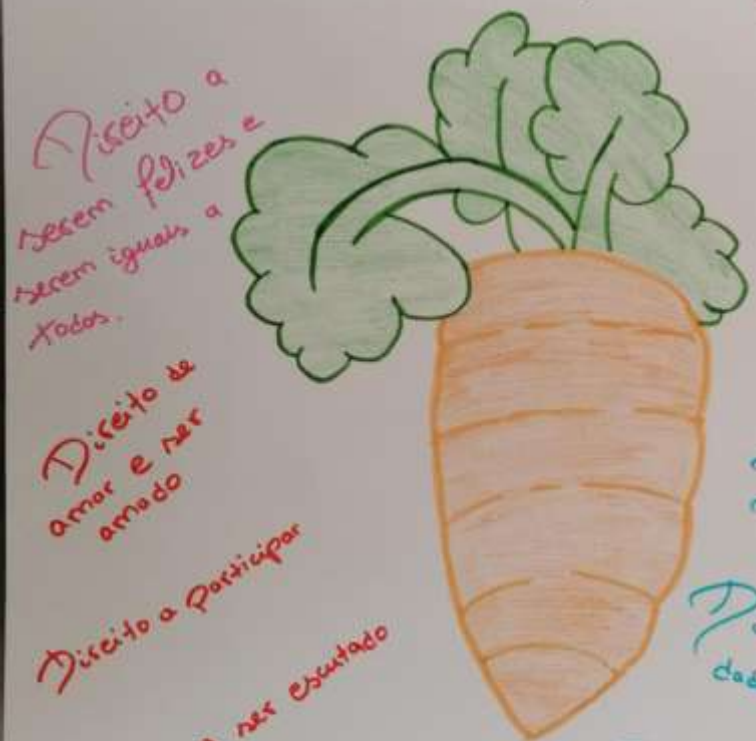 Direito a
serem felizes e
serem iguais a
todos.
Direito de
amar e ser
amado
Direito a participar
ser escutado